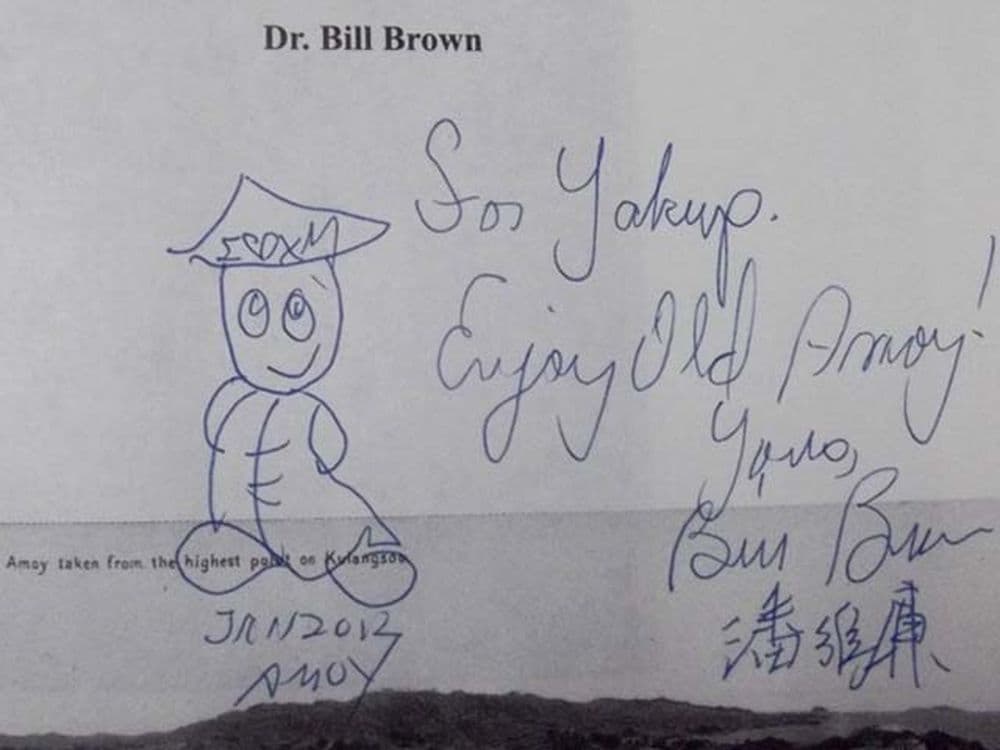 Dr. Bill Brown
For Yakup.
Enjoy Old Amoy!
Yours,
Bill Brown
潘維廉
Amoy taken from the highest point on Kulangsoo
JAN 2013
AMOY